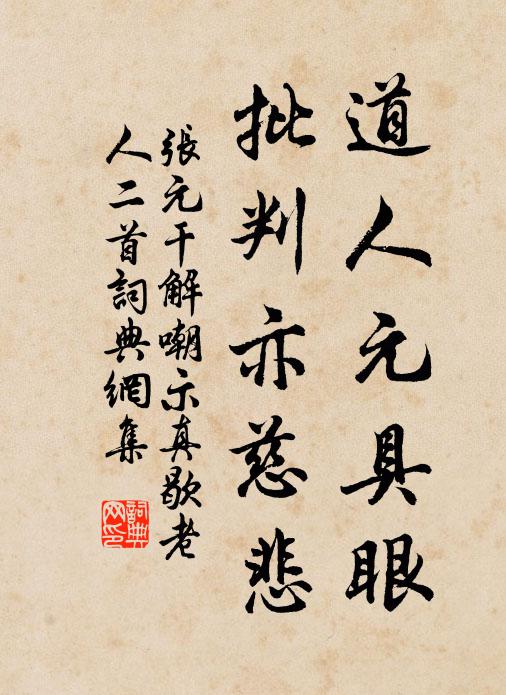 道人元具眼
批判亦慈悲
張元干解嘲示真歇老
人二首詞典網集
詞典
网印